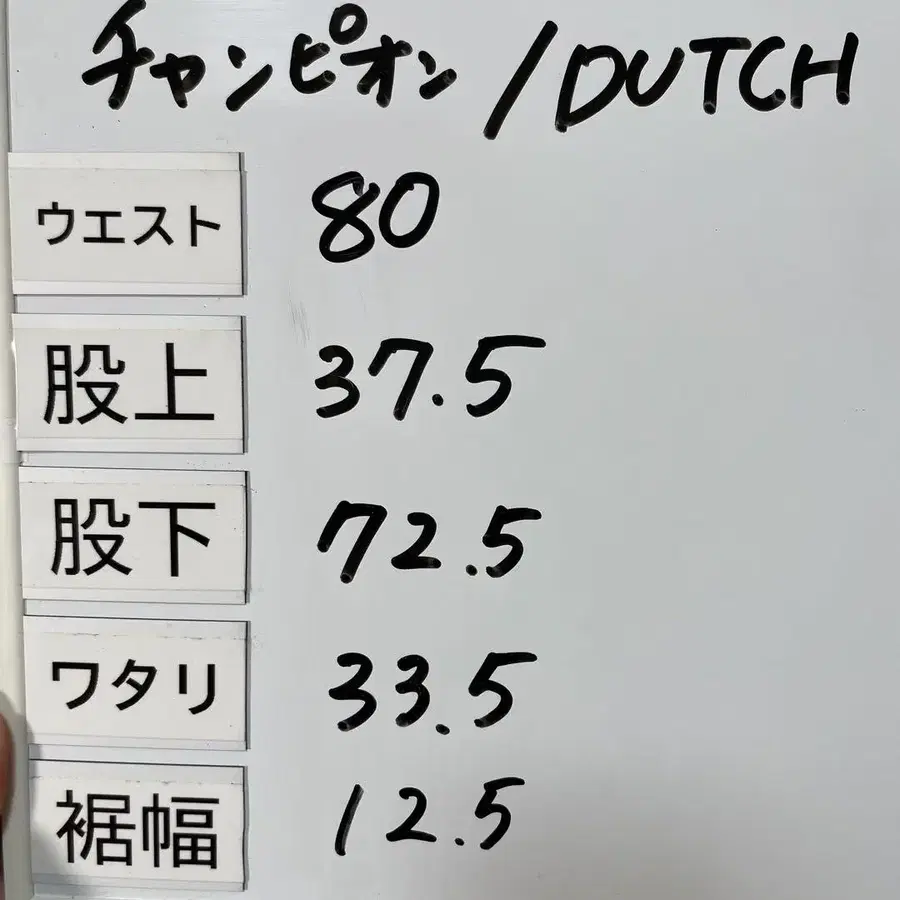 チャンピオン/DUTCH
ウエスト 80
股上 37.5
股下 72.5
ワタリ 33.5
裾幅 12.5